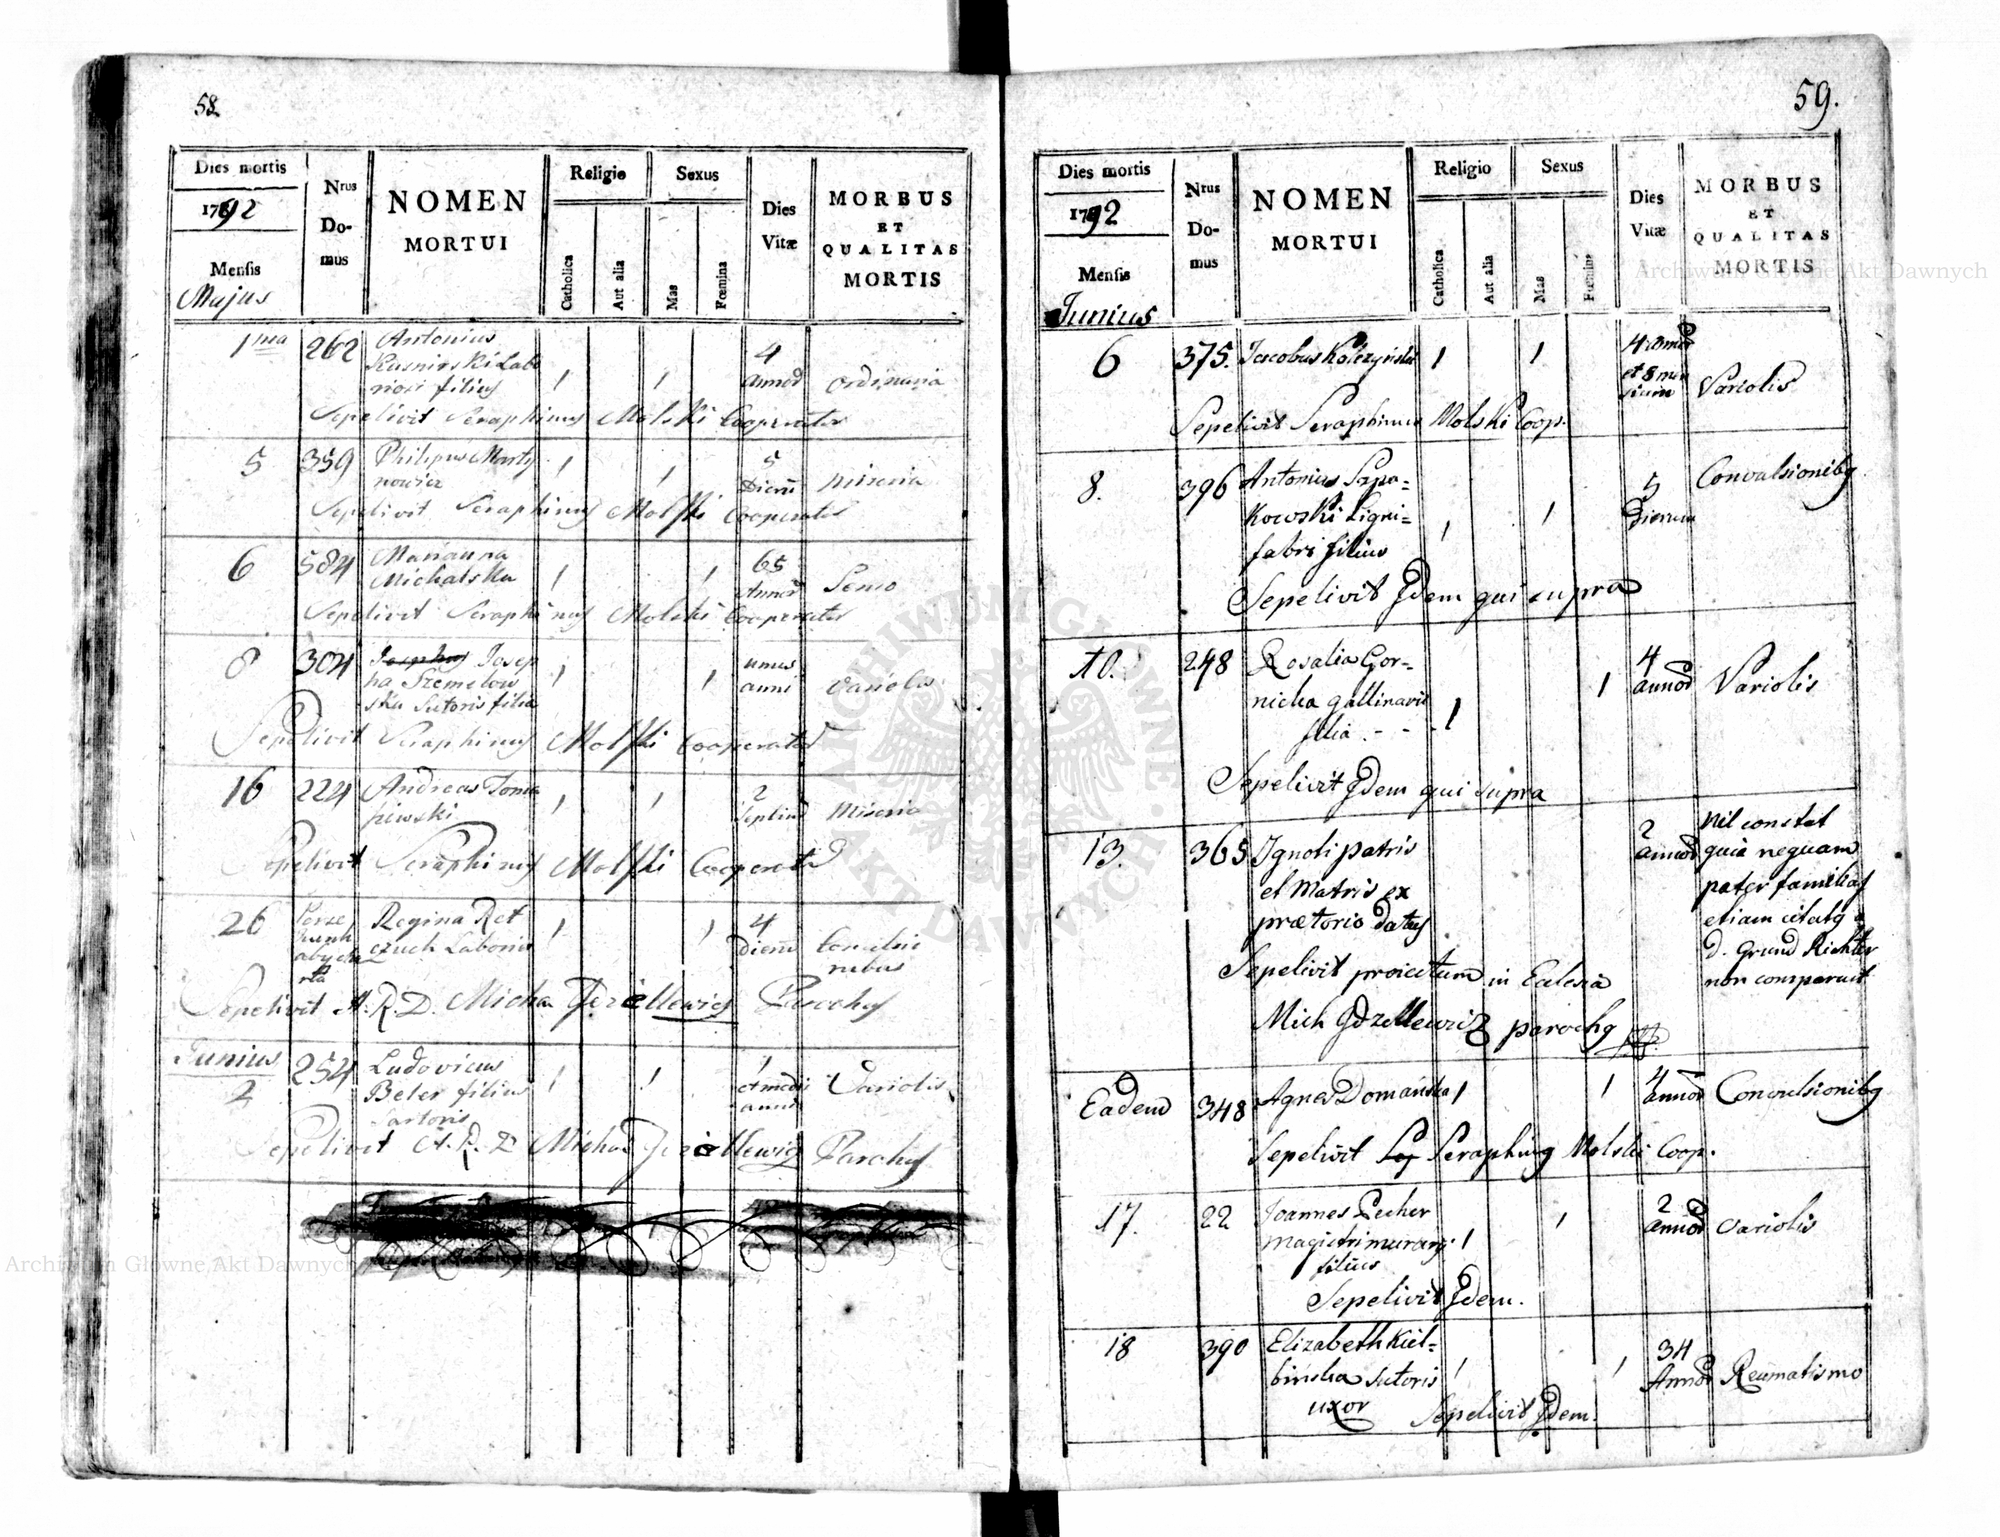 58.
Dies mortis
1792
Mensis
Majus
Nrus
Do-
mus
NOMEN
MORTUI
Religio
Catholica
Aut alia
Sexus
Mas
Fœmina
Dies
Vitæ
MORBUS
ET
QUALITAS
MORTIS
1ma 262 Antonius
Labo
riosi filius 1 1 4 annor ordinaria
Sepelivit Seraphinus Molski Cooperator
5 359 Philipus Marty
nowicz 1 1 5 Dierum miseria
Sepelivit Seraphinus Molski Cooperator
6 584 Marianna
Michalska 1 1 65 Annor Senio
Sepelivit Seraphinus Molski Cooperator
8 304 Josephus Josep
ha Szemelow
ska Sutoris filia 1 1 unius anni variolis
Sepelivit Seraphinus Molski Cooperator
16 224 Andreas Toma
szewski 1 1 2 Septim Miseria
Sepelivit Seraphinus Molski Cooperator
26 Regina Ret
czuch Laborio 1 1 4 Dierum
Sepelivit A. R. D. Micha Parochus
Junius
2 254 Ludovicus
Beter filius
Sartoris 1 1 1 et medi anni Variolis
Sepelivit A. R. D Micha Parochus
59.
Dies mortis
1792
Mensis
Junius
Nrus
Do-
mus
NOMEN
MORTUI
Religio
Catholica
Aut alia
Sexus
Mas
Fœmina
Dies
Vitæ
MORBUS
ET
QUALITAS
MORTIS
6 375. Jacobus Kolczyński 1 1 4 annor
et 8 men
sium Variolis
Sepelivit Seraphinus Molski Coop.
8. 396 Antonius Szpa=
kowski Ligni=
fabri filius 1 1 5
Dierum Convulsionibq
Sepelivit Jdem qui supra
10. 248 Rosalia Gor=
nicka gallinarii
filia - - - 1 1 4
annor Variolis
Sepelivit Jdem qui supra
13. 365 Ignoti patris
et Matris ex
prætorio datus 2
annor Nil constat
quia nequam
pater familias
etiam citatq a
D. Grund Richter
non comparuit
Sepelivit proiectum in Eclesia
Mich Jdzellewicz parochq
Eadem 348 Agnes Domańska 1 1 4
annor Convulsionibq
Sepelivit Seraphinq Molski Coop.
17. 22 Joannes Pecher
magistri murary
filius 1 1 2
annor variolis
Sepelivit Jdem.
18 390 Elizabeth Kiel=
bińska Sutoris
uxor 1 1 34
Annor Reumatismo
Sepelivit Jdem.
Archiwum Główne Akt Dawnych
Archiwum Główne Akt Dawnych
ARCHIWUM GŁÓWNE AKT DAWNYCH